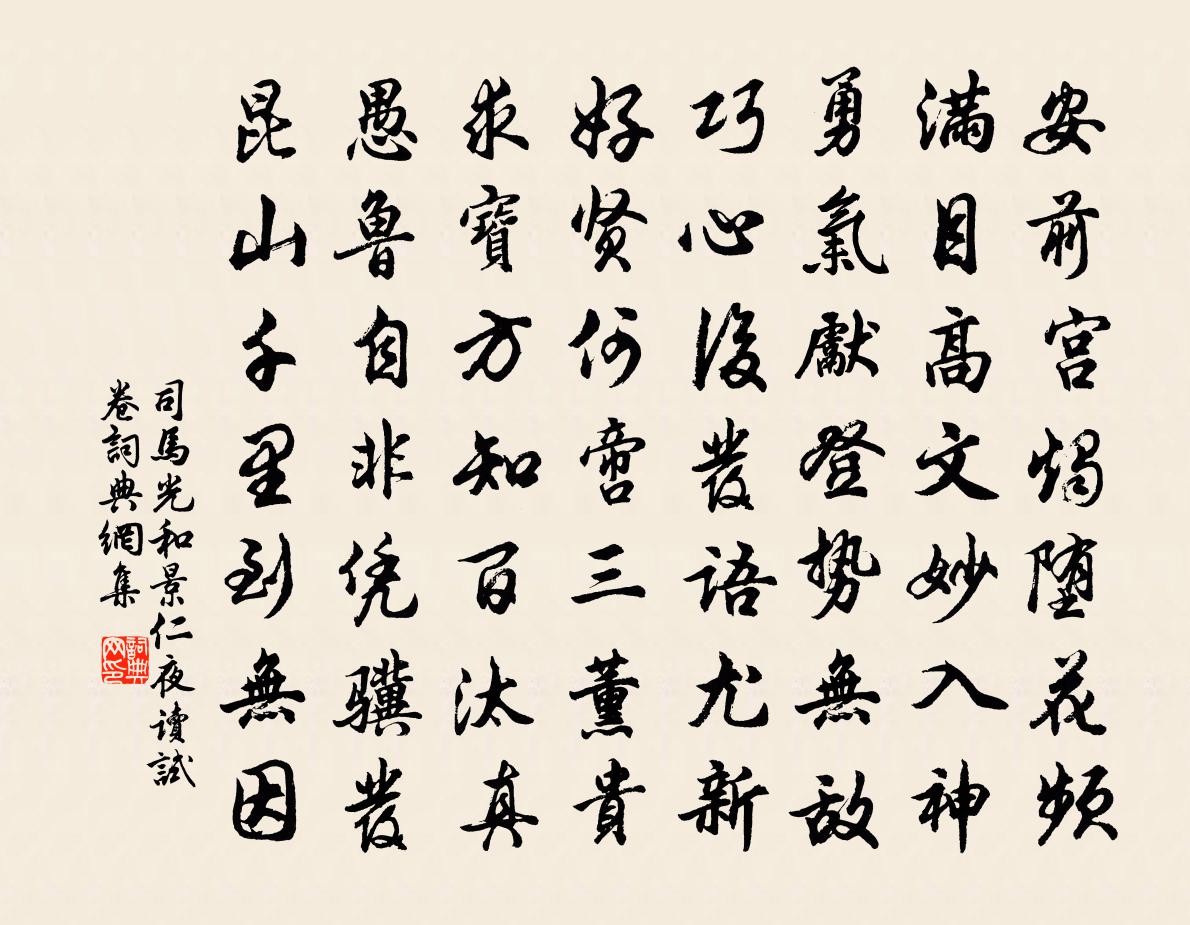 安前宫烛堕花频
满目高文妙入神
勇氣獻登势無敌
巧心後發語尤新
好贤何啻三薰貴
求寶方知百汰真
愚魯自非凭骥發
昆山千里到無因
司馬光和景仁夜讀試
卷詞典網集
詞典网印